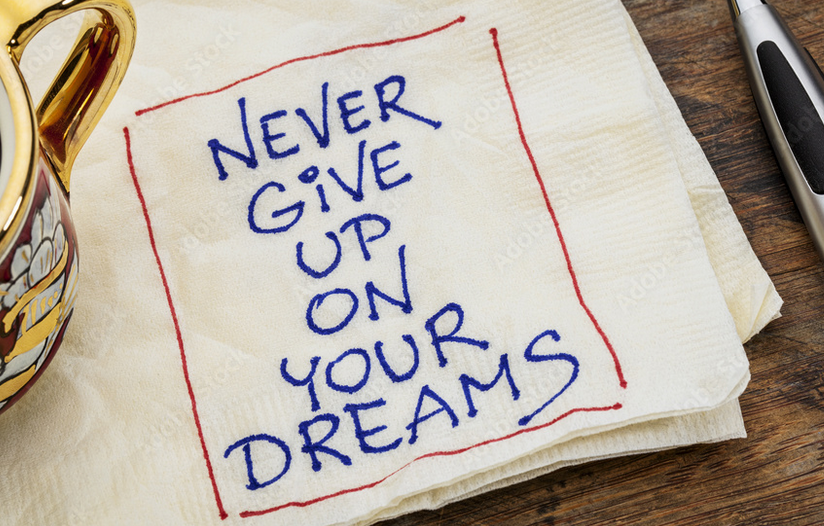 NEVER
GiVE
UP
ON
YOUR
DREAMS
The
Adobe Stock